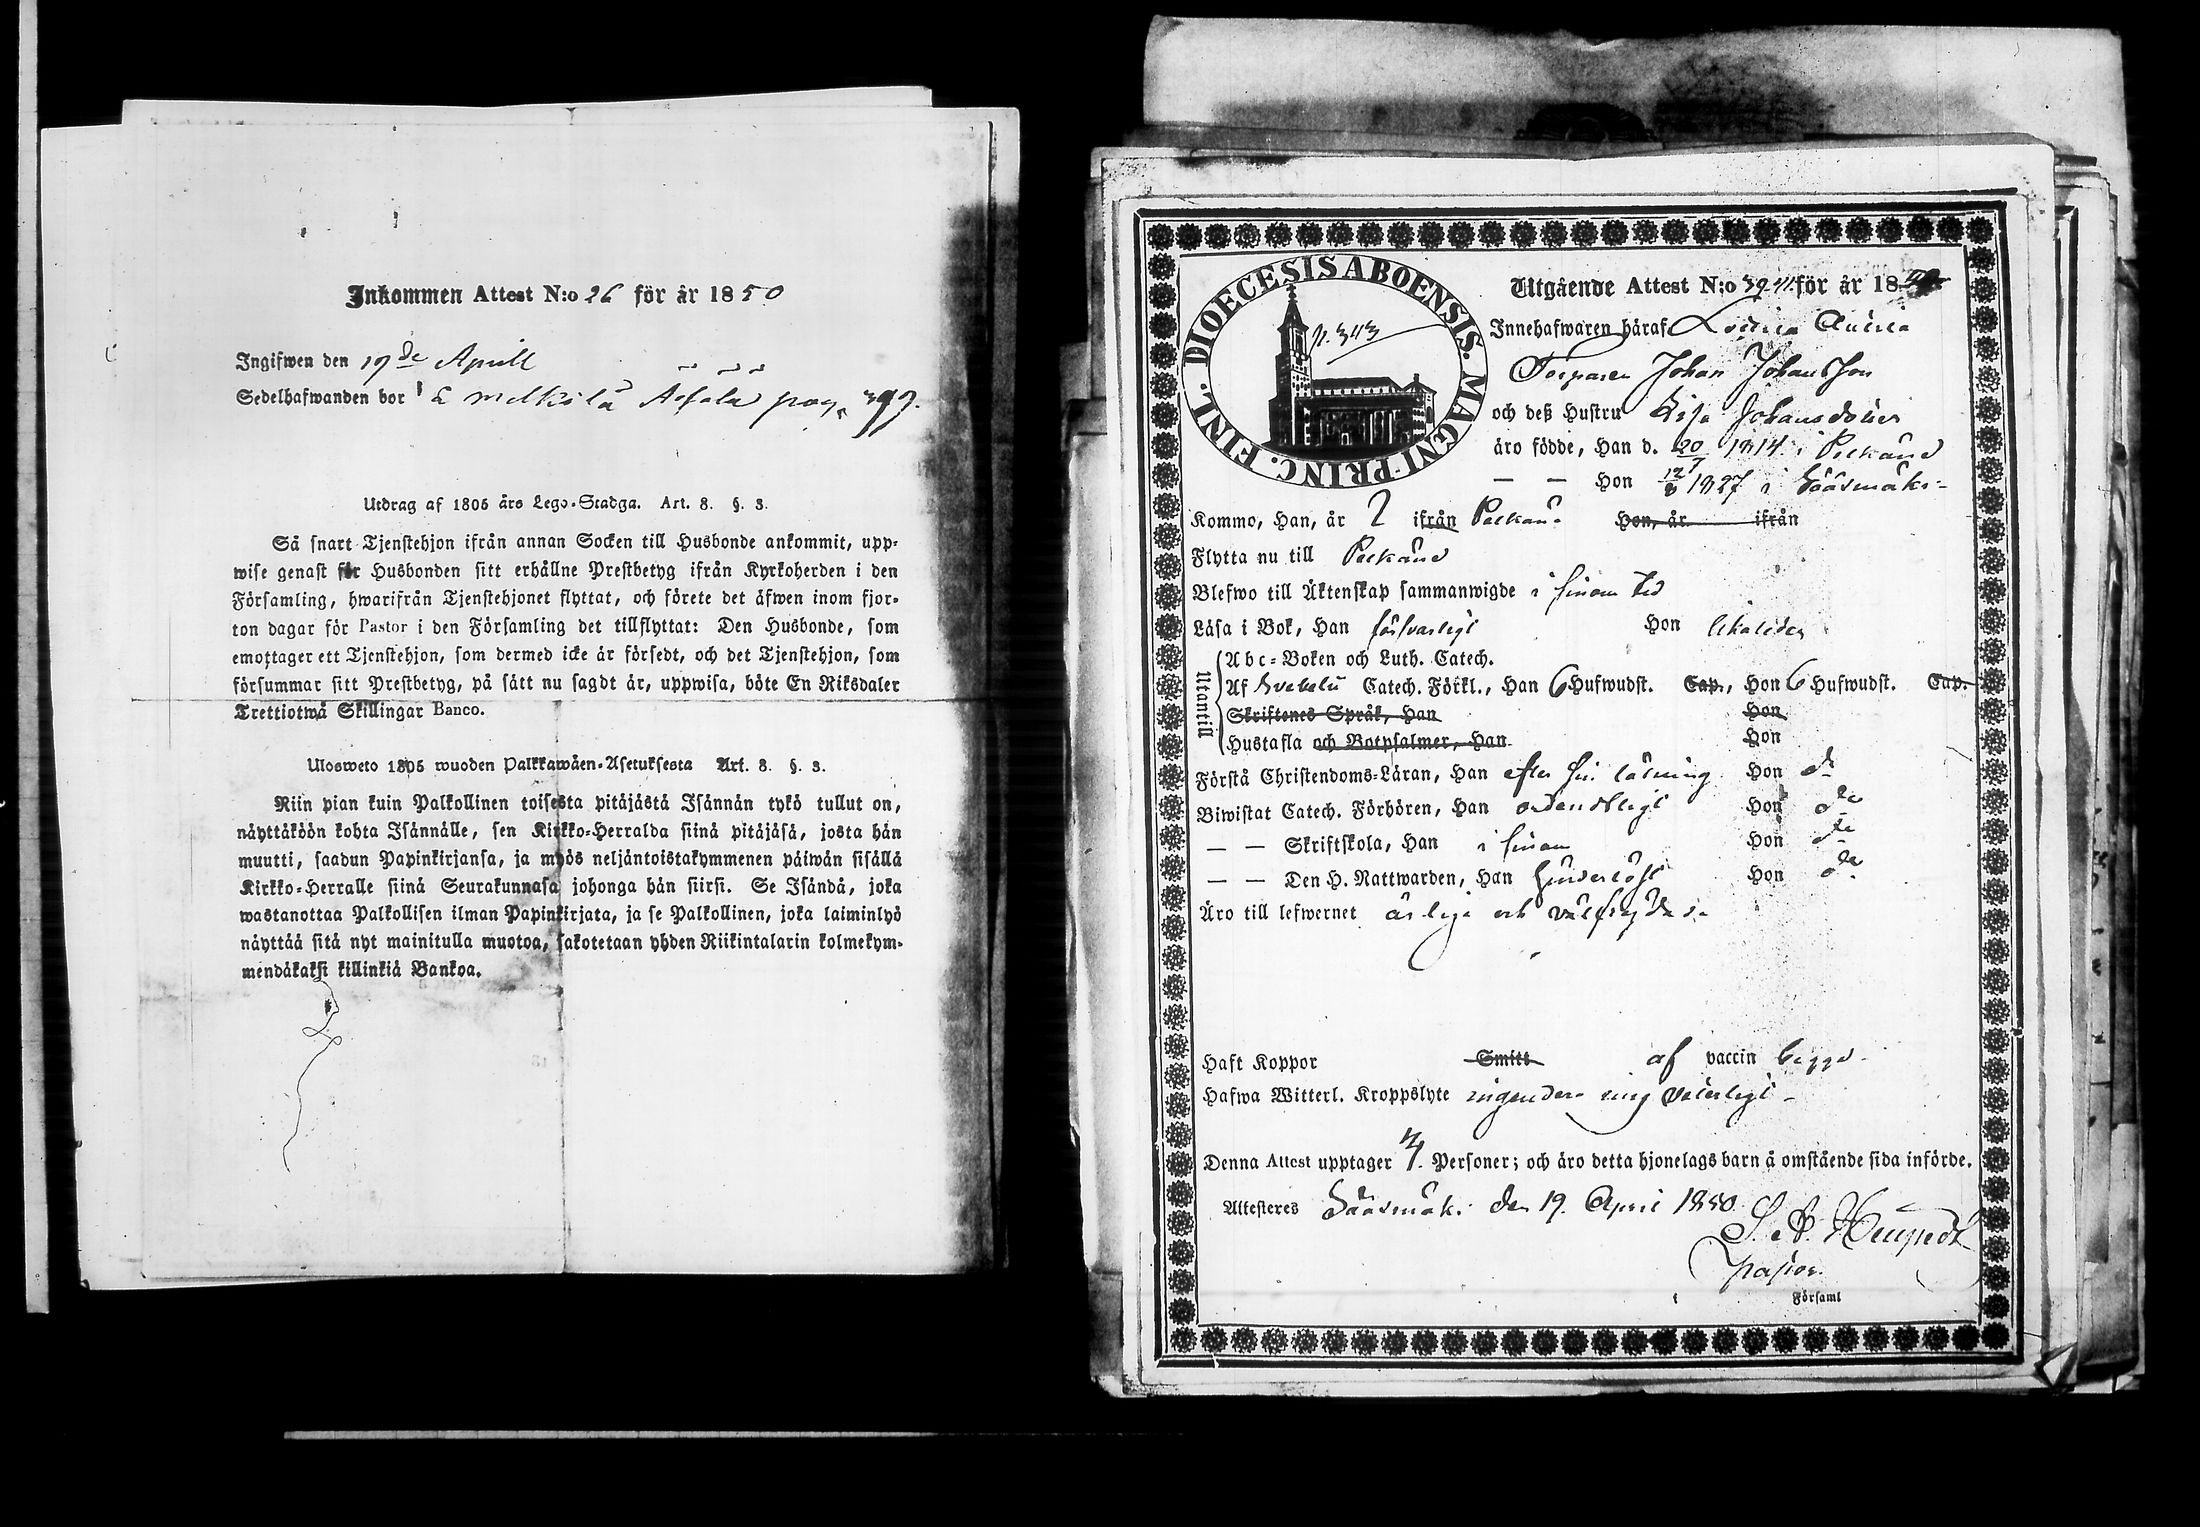 Inkommen Attest N:o 26 för år 1850
Ingifwen den 19de Aprill
Sedelhafwanden bor
Utdrag af 1805 års Lego-Stadga. Art. 8. §. 3.
Så snart Tjenstehjon ifrån annan Socken till Husbonde ankommit, upp-
wise genast för Husbonden sitt erhållne Prestbetyg ifrån Kyrkoherden i den
Församling, hwarifrån Tjenstehjonet flyttat, och förete det äfwen inom fjor-
ton dagar för Pastor i den Församling det tillflyttat: Den Husbonde, som
emottager ett Tjenstehjon, som dermed icke är försedt, och det Tjenstehjon, som
försummar sitt Prestbetyg, på sätt nu sagdt är, uppwisa, böte En Riksdaler
Trettiotwå Skillingar Banco.
Ulosweto 1805 wuoden Palkkawäen-Asetuksesta Art. 8. §. 3.
Niin pian kuin Palkollinen toisesta pitäjästä Isännän tykö tullut on,
näyttäköön kohta Isännälle, sen Kirkko-Herralda siinä pitäjäsä, josta hän
muutti, saadun Papinkirjansa, ja myös neljäntoistakymmenen päiwän sisällä
Kirkko-Herralle siinä Seurakunnasa johonga hän siirsi. Se Isändä, joka
wastanottaa Palkollisen ilman Papinkirjata, ja se Palkollinen, joka laiminlyö
näyttää sitä nyt mainitulla muotoa, sakotetaan yhden Riikintalarin kolmekym-
mendäkaksi killinkiä Bankoa.
DIOECESIS ABOENSIS. MAGNI-PRINC. FINL.
p. 343
Utgående Attest N:o för år 18
Innehafwaren häraf
Torparen Johan Johansson
och deß Hustru Lisa Johansdotter
äro födde, Han d. 20/7 1814 i Pelkäne
— — Hon 1827 i Sääxmäki
Kommo, Han, år ifrån Pelkäne Hon, år ifrån
Flytta nu till Pelkäne
Blefwo till Äktenskap sammanwigde i sinom tid
Läsa i Bok, Han försvarligt Hon likaledes
Utantill
Abc-Boken och Luth. Catech.
Af Svebelii Catech. Förkl., Han 6 Hufwudst. Cap., Hon 6 Hufwudst. Cap.
Skriftenes Språk, Han Hon
Hustafla och Botpsalmer, Han Hon
Förstå Christendoms-Läran, Han efter sin läsning Hon do
Biwistat Catech. Förhören, Han ordentligt Hon do
— — Skriftskola, Han i sinom Hon do
— — Den H. Nattwarden, Han hinderlöst Hon do
Äro till lefwernet ärlige och välfrejdade
Haft Koppor Smitt af vaccin begge
Hafwa Witterl. Kroppslyte ingendera mig veterligt
Denna Attest upptager 4 Personer; och äro detta hjonelags barn å omstående sida införde.
Attesteres Sääxmäki den 19 April 1850
Församl